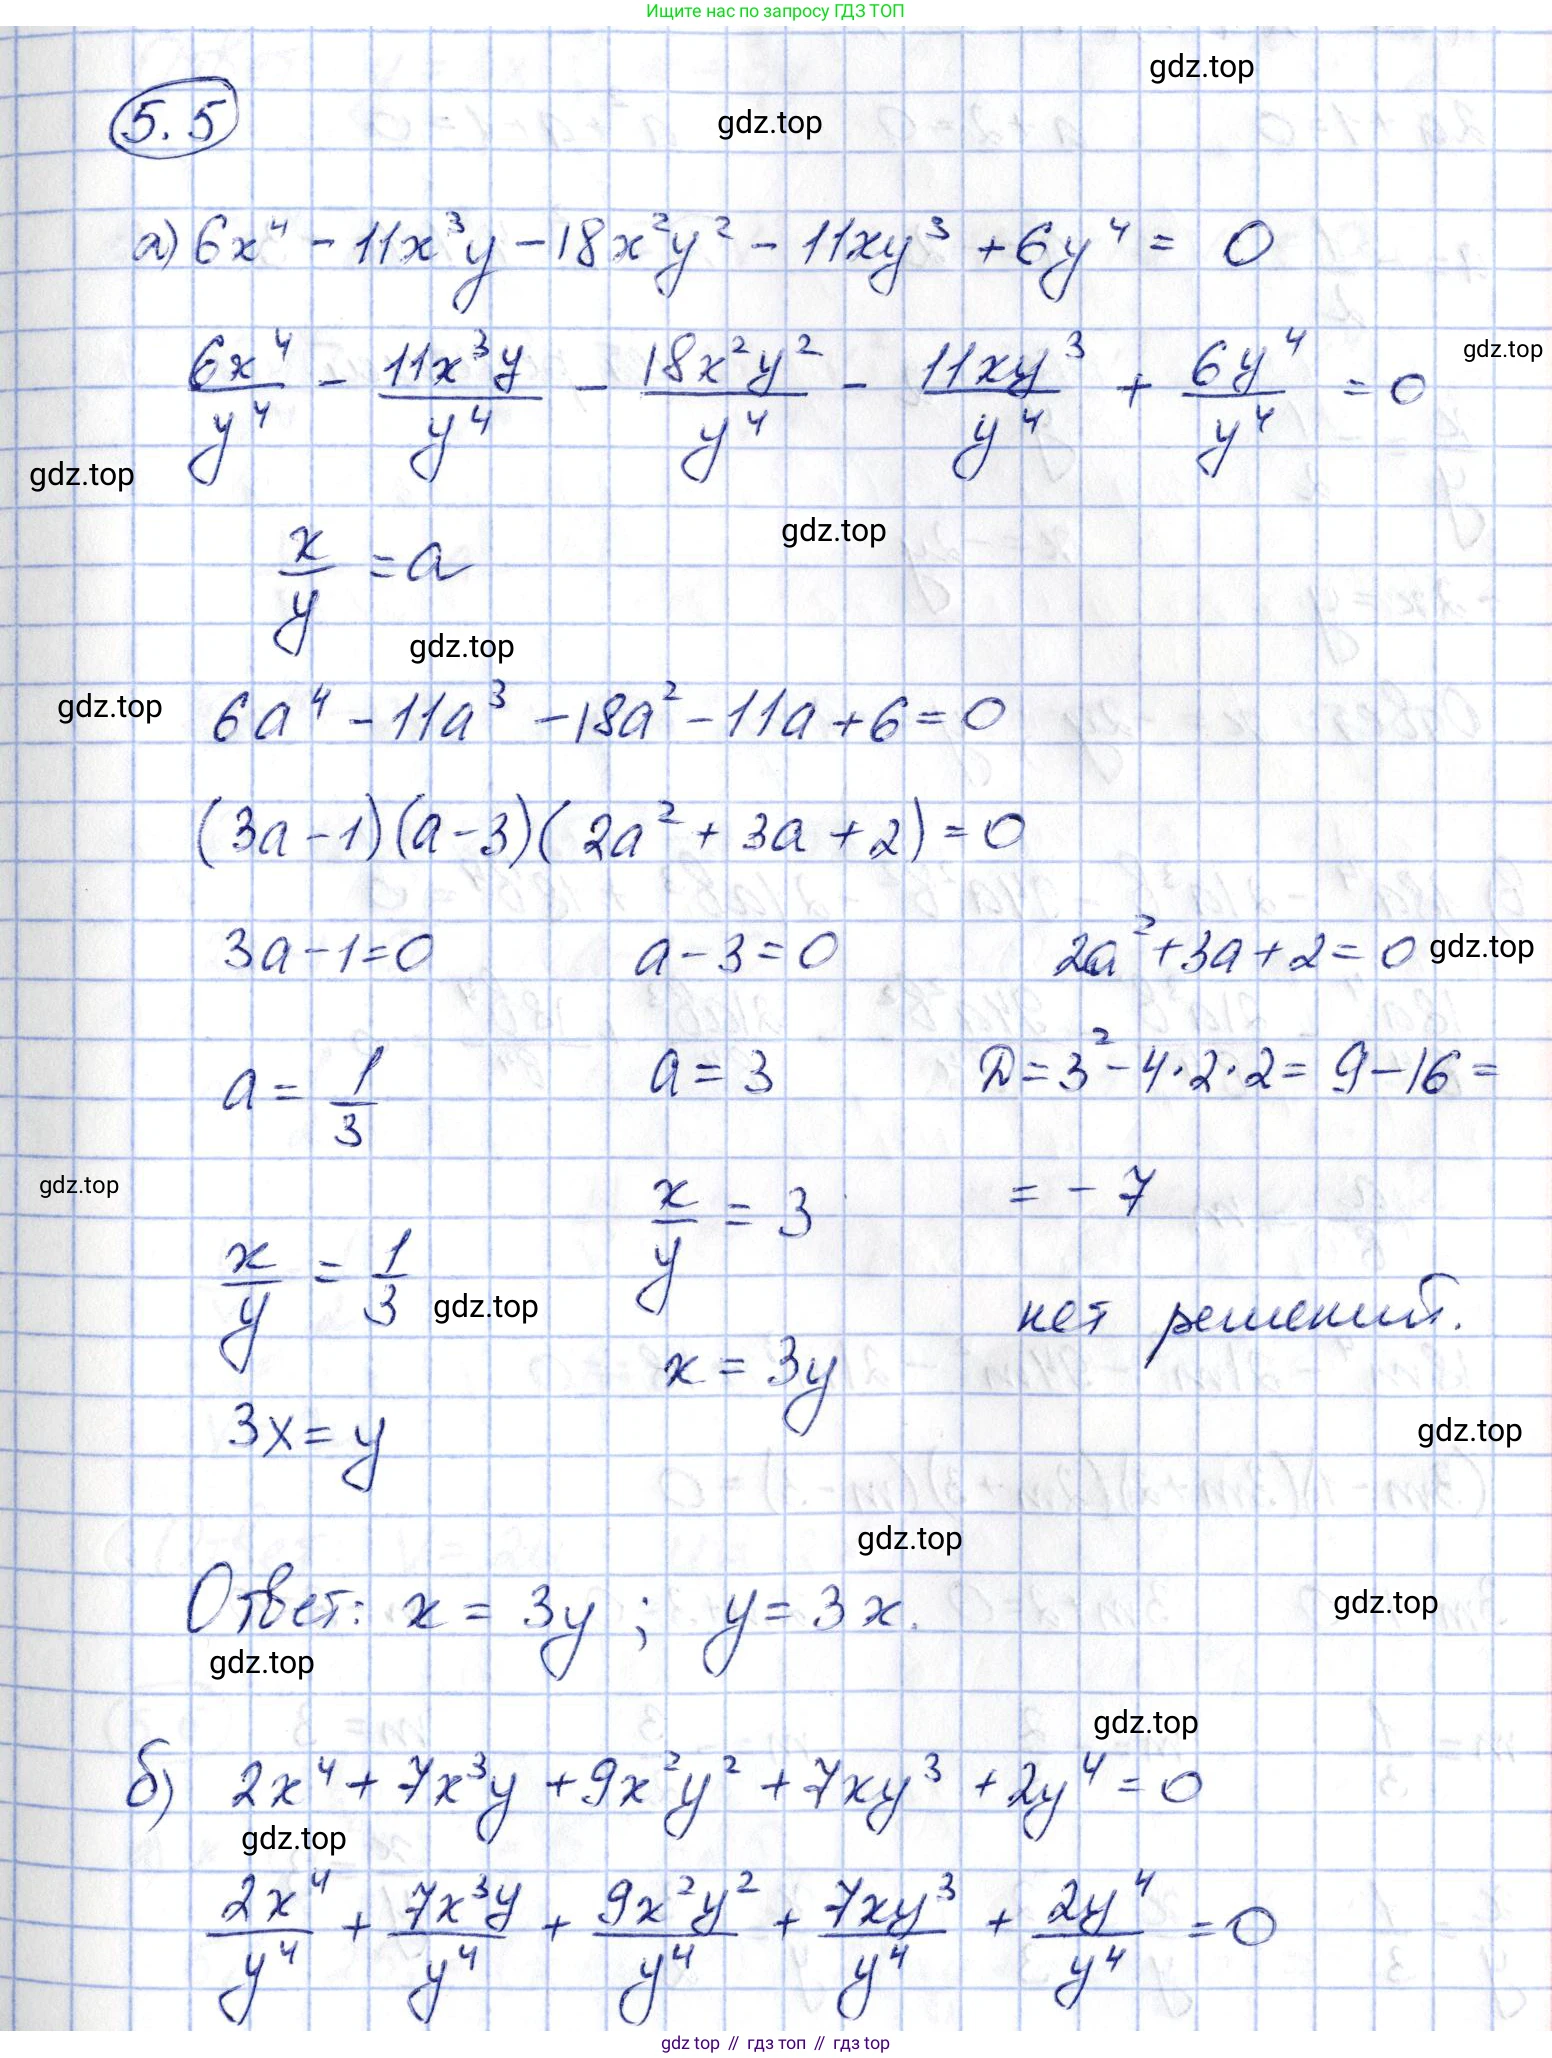 Ищите нас по запросу ГДЗ ТОП
gdz.top
5.5
gdz.top
а) 6x⁴ - 11x³y - 18x²y² - 11xy³ + 6y⁴ = 0
6x⁴/y⁴ - 11x³y/y⁴ - 18x²y²/y⁴ - 11xy³/y⁴ + 6y⁴/y⁴ = 0
gdz.top
gdz.top
x/y = a
gdz.top
gdz.top
gdz.top
6a⁴ - 11a³ - 18a² - 11a + 6 = 0
(3a - 1)(a - 3)(2a² + 3a + 2) = 0
3a - 1 = 0 a - 3 = 0 2a² + 3a + 2 = 0
gdz.top
a = 1/3 a = 3 D = 3² - 4·2·2 = 9 - 16 =
gdz.top
x/y = 3 = - 7
x/y = 1/3 нет решений.
gdz.top
x = 3y
3x = y
gdz.top
gdz.top
Ответ: x = 3y ; y = 3x.
gdz.top
gdz.top
gdz.top
б) 2x⁴ + 7x³y + 9x²y² + 7xy³ + 2y⁴ = 0
gdz.top
2x⁴/y⁴ + 7x³y/y⁴ + 9x²y²/y⁴ + 7xy³/y⁴ + 2y⁴/y⁴ = 0
gdz top // гдз топ // гдз top